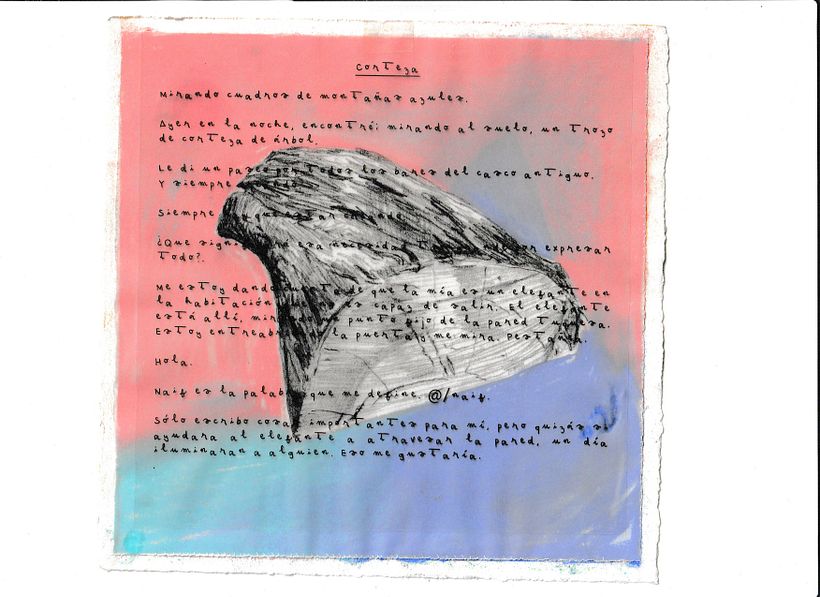 Corteza
Mirando cuadros de montañas azules.
Ayer en la noche, encontré: mirando al suelo, un trozo
de corteza de árbol.
Le di un paseo por todos los bares del casco antiguo.
Y siempre
Siempre que estar
¿Que esa necesidad por expresar
todo?.
Me estoy dando cuenta de que la mía es un elefante en
la habitación capaz de salir. El elefante
está allí, mirando un punto fijo de la pared
Estoy la puerta y me mira. Pestañea.
Hola.
Naif es la palabra que me define. @/naif.
Sólo escribo cosas importantes para mí, pero quizás si
ayudara al elefante a atravesar la pared, un día
iluminaran a alguien. Eso me gustaría.